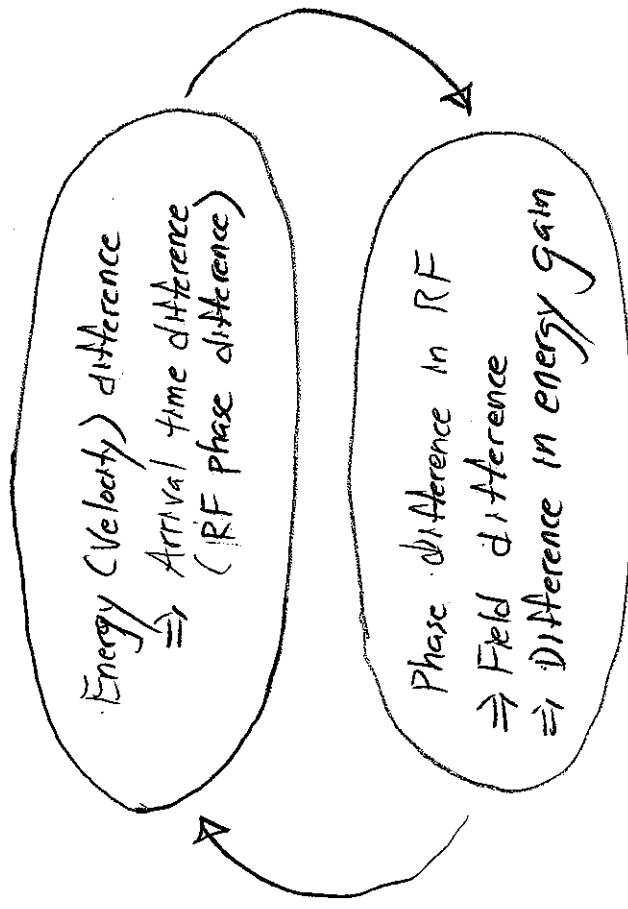 Energy (Velocity) difference
⇒ Arrival time difference
(RF phase difference)
Phase difference in RF
⇒ Field difference
⇒ Difference in energy gain